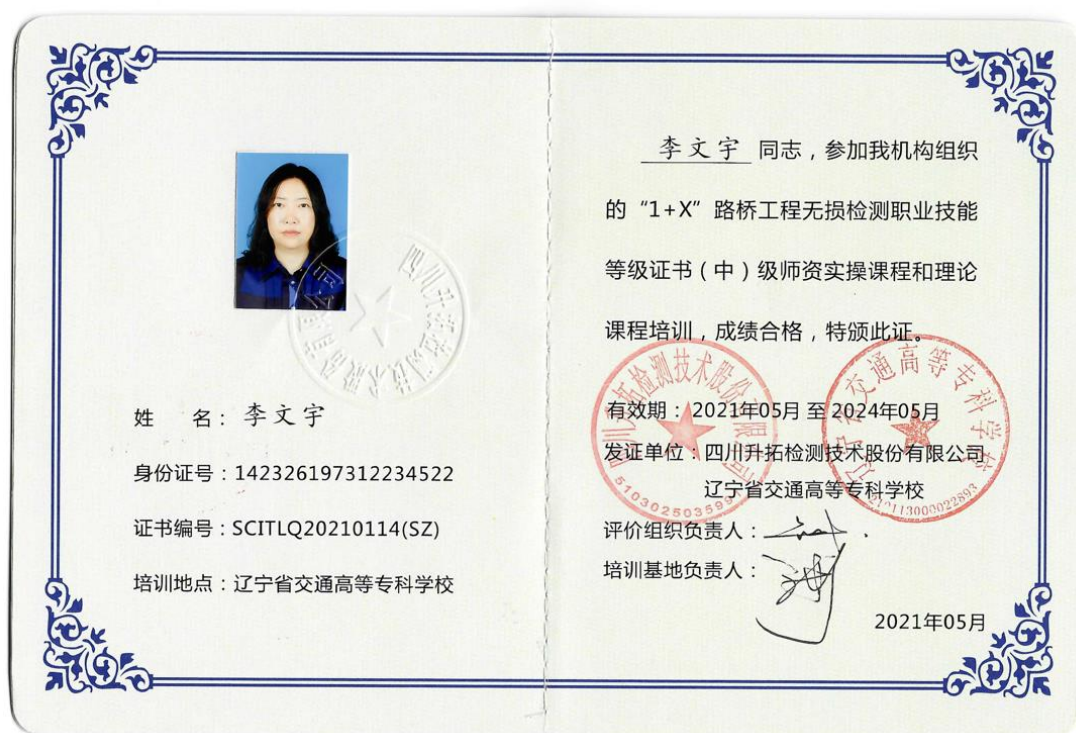 姓 名：李文宇
身份证号：142326197312234522
证书编号：SCITLQ20210114(SZ)
培训地点：辽宁省交通高等专科学校
四川升拓检测技术股份有限公司
李文宇 同志，参加我机构组织
的“1+X”路桥工程无损检测职业技能
等级证书（中）级师资实操课程和理论
课程培训，成绩合格，特颁此证。
有效期：2021年05月 至 2024年05月
发证单位：四川升拓检测技术股份有限公司
辽宁省交通高等专科学校
评价组织负责人：
培训基地负责人：
2021年05月
四川升拓检测技术股份有限公司
辽宁省交通高等专科学校